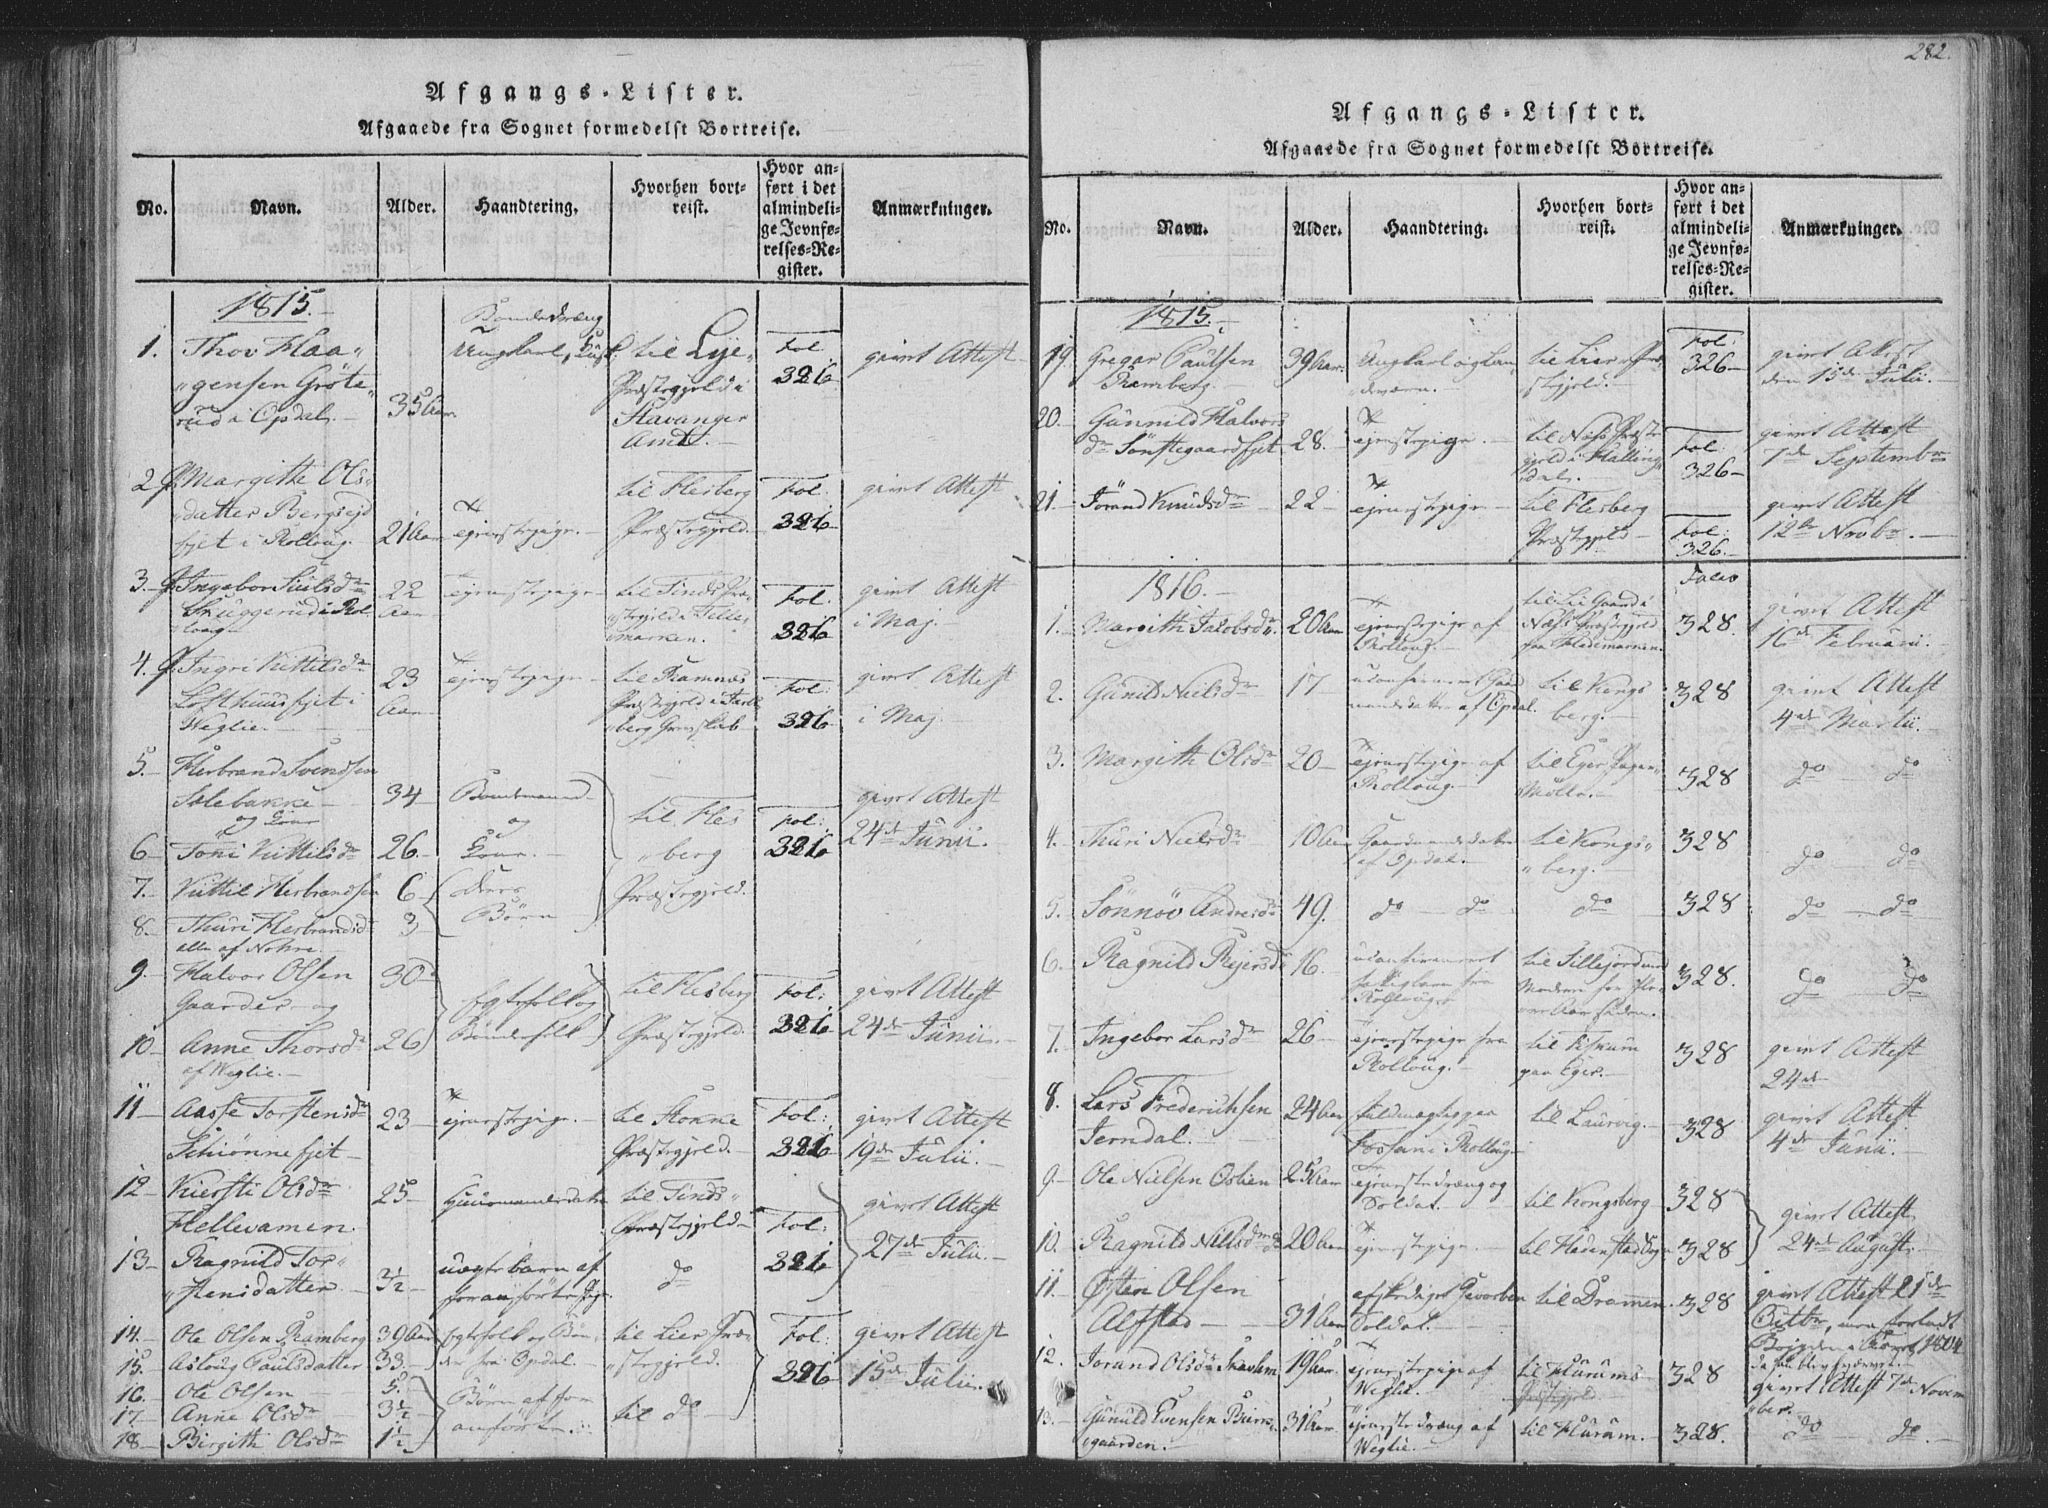 Afgangs-Lister.
Afgaaede fra Sognet formedelst Bortreise.
No. Navn. Alder. Haandtering. Hvorhen bortreist. Hvor anført i det almindelige Jevnførelses-Register. Anmærkninger.
1815.
1. Thov Haagensen Gröterud i Opdal. 35 Aar. Bondedræng Ungkarl til Lye Præstegjeld i Stavanger Amt. Fol. 326 givet Attest
2 Margithe Olsdatter Bergsejd fjet i Rolloug. 21 Aar Tjenestepige. til Flesberg Præstegjeld. Fol: 326 givet Attest
3. Ingebor Juulsdr Skuggerud i Rolloug 22 Aar Tjenestepige til Tinds Præstegjeld i Tillemarken. Fol: 326 givet Attest i Maj.
4. Ingri Kittilsdr Lofthuusfjet i Weglie. 23 Aar Tjenestepige til Ramnæs Præstegjeld i Jarlsberg Grevskab Fol: 326 givet Attest i Maj.
5. Herbrand Svendsen Solebakke og Kone 34 Bondemand og
6 Töni Kittilsdr 26. Kone. til Flesberg Præstegjeld. Fol: 326 givet Attest 24de Junii.
7. Kittil Herbrandsen 6 Deres Börn
8. Thuri Herbrandsdr 3
alle af Nohre.
9. Halvor Olsen Gaarder og 30 Egtefolk og Bönderfolk til Flesberg Præstegjeld. Fol: 326 givet Attest 24de Junii.
10 Anne Thorsdr af Weglie. 26
11 Aasse Torstensdr Schiönne fjet 23 Tjenestepige. til Honne Præstegjeld. Fol: 326 givet Attest 19de Julii.
12 Kiersti Olsdr Hellevamen. 25 Huusmandsdatter til Tinds Præstegjeld Fol: 326 givet Attest 27de Julii.
13 Ragnild Torstensdatter 3½ uægte barn af foranförte Pige do
14. Ole Olsen Ramberg 39 Aar Egtefolk og Bönder fra Opdal. til Lier Præstegjeld. Fol: 326 givet Attest 15de Julii.
15. Aslaug Paulsdatter 33.
16. Ole Olsen 5. Börn af foranfört til do
17. Anne Olsdr 3½
18 Birgith Olsdr 1½
282.
Afgangs-Lister.
Afgaaede fra Sognet formedelst Bortreise.
No. Navn. Alder. Haandtering. Hvorhen bortreist. Hvor anført i det almindelige Jevnførelses-Register. Anmærkninger.
1815.
19. Gregar Paulsen Ramberg. 39 Aar. Ungkarl og Landeværn. til Lier Præstegjeld. Fol: 326 givet Attest den 15de Julii.
20. Gunnild Halvorsdr Sönstegaardsfjet 28. Tjenestepige. til Næss Præstegjeld i Hallingdal. Fol. 326 givet Attest 7de Septembr
21. Jörand Knudsdr 22 Tjenestepige til Flesberg Præstegjeld Fol: 326. givet Attest 12te Novbr.
1816.
Folio
1. Margith Jacobsdr. 20 Aar Tjenestepige af Rolloug. til Li Gaard i Næss Præstegjeld paa Hedemarken. 328. givet Attest 16de Februarii.
2. Gunild Nielsdr 17 uconfirmeret Gaardmandsdatter af Opdal. til Kongsberg. 328 givet Attest 4de Martii.
3. Margith Olsdr 20 Tjenestepige af Rolloug. til Eger 328 do do
4. Thuri Nielsdr 10 Aar Gaardmandsdatter af Opdal. til Kongsberg. 328 do do
5. Sönnöv Andersdr 49. do do do 328 do do
6. Ragnild Rejersdr 16. uconfirmeret fra Rolloug til Sillejord 328. do do
7. Ingebor Larsdr 26 Tjenestepige fra Rolloug. til Fiskum paa Eger. 328 givet Attest 24de
8. Lars Frederichsen Jerndal. 24 Aar Fossan i Rolloug til Laurvig. 328 givet Attest 4de Junii.
9. Ole Nielsen Oslien 25 Aar Tjenestedræng og Soldat. til Kongsberg 328 givet Attest 24de August.
10. Ragnild Nillsdr 20 Aar Tjenestepige. til Hedenstad Sogn 328
11. Östen Olsen Alfstad 31 Aar afskediget Gevorben Soldat. til Dramen. 328 givet Attest 21de Octbr, men forladt Bojgden i 1804
12. Jorand Olsdr 19 Aar. Tjenestepige af Weglie. til Hurums Præstegjeld 328 givet Attest 7de November.
13. Gunuld Evensen Biörnsgaarden. 31 Aar Tjenestedræng af Weglie. til Hurum. 328. do do.